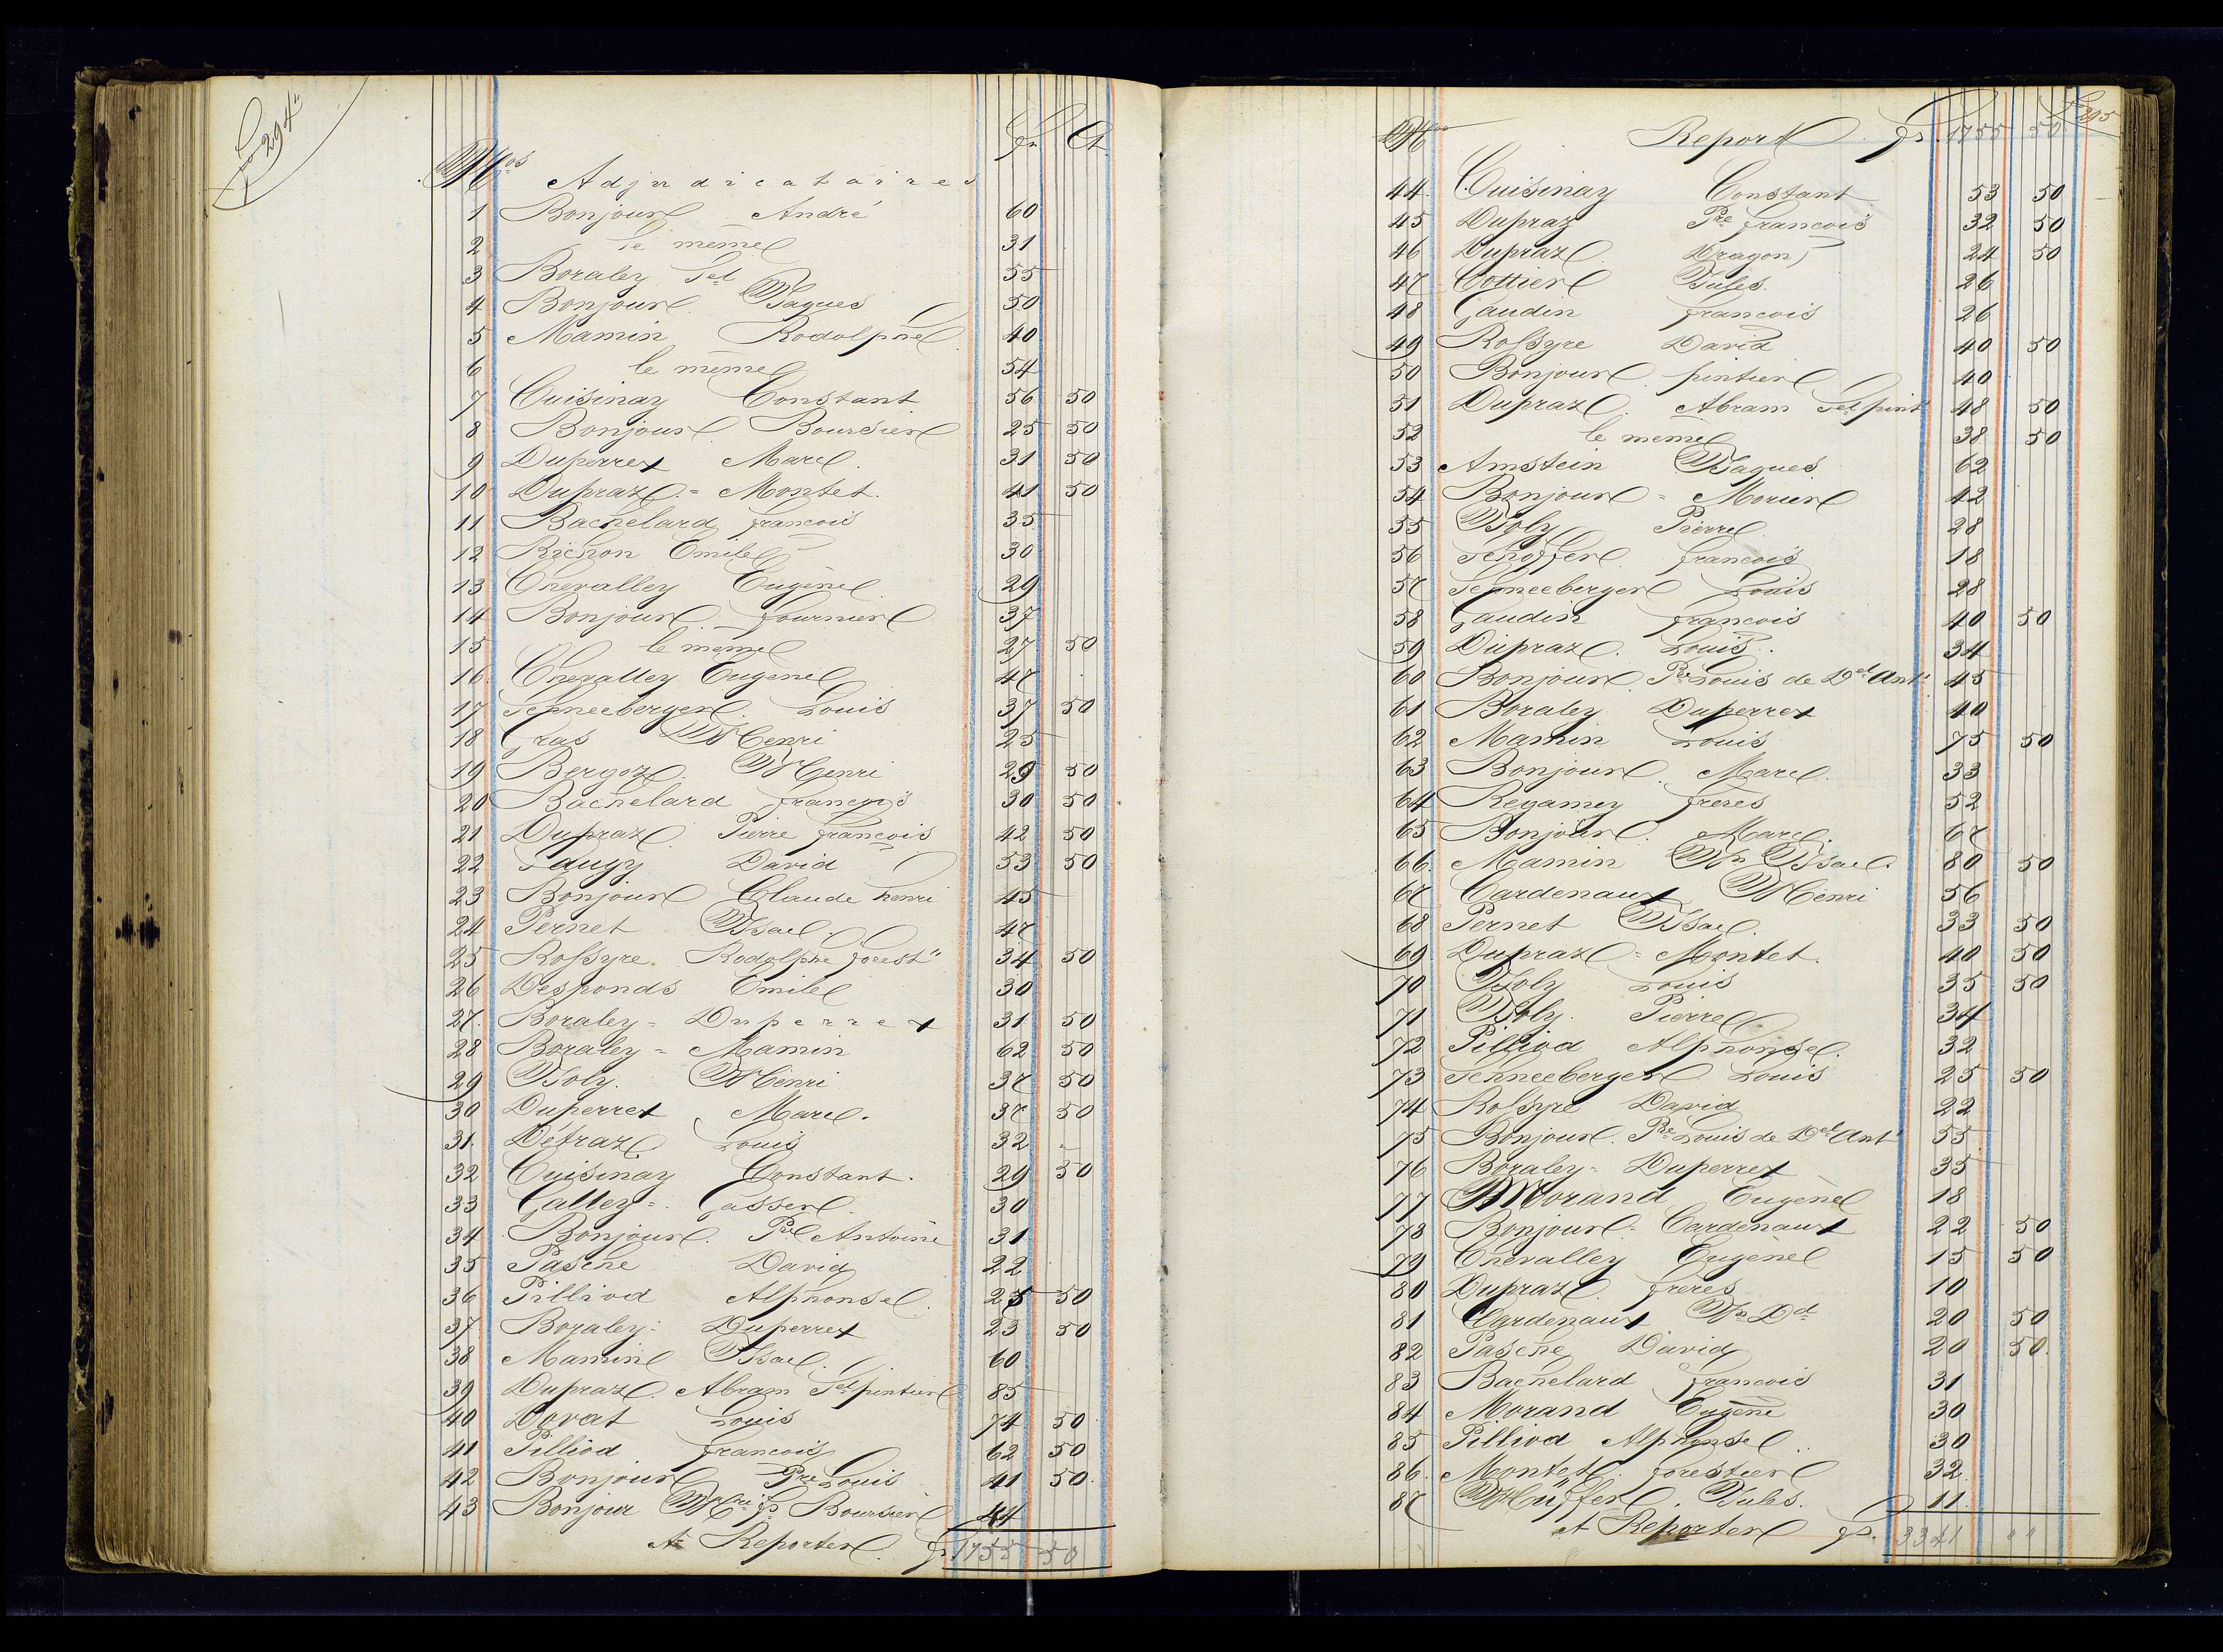 fo 294
Nos Adjudicataires fr. Ct.
1 Bonjour André 60
2 le même 31
3 Boraley Sel 55
4 Bonjour Jaques 50
5 Mamin Rodolphe 40
6 le même 54
7 Cuisinay Constant 56 50
8 Bonjour Boursier 25 50
9 Duperrex Marc 31 50
10 Dupraz = Montet. 41 50
11 Bachelard francois 35
12 Richon Emile 30
13 Chevalley Eugène 29
14 Bonjour fournier 37
15 le même 27 50
16 Chevalley Eugène 47
17 Schneeberger Louis 37 50
18 Gras Henri 25
19 Bergoz Henri 29 50
20 Bachelard francois 30 50
21 Dupraz Pierre francois 42 50
22 Taugy David 53 50
23 Bonjour Claude henri 45
24 Pernet Isac. 47
25 Rossyre Rodolphe forest" 34 50
26 Desponds Emile 30
27. Boraley = Duperrex 31 50
28 Boraley = Mamin 62 50
29 Joly. Henri 37 50
30 Duperrex Marc. 37 50
31. Détraz Louis 32 "
32 Cuisinay Constant. 29 50
33 Galley = Gasser 30
34 Bonjour. Pre Antoine 31
35 Pasche David 22
36 Pilliod Alphonse. 25 50
37 Boraley = Duperrex 23 50
38 Mamin Isac. 60
39 Dupraz. Abram Sel pintier 85
40 Dovat Louis 74 50
41 Pilliod francois 62 50
42 Bonjour Pre Louis 41 50.
43 Bonjour Hri fs Boursier 44
A Reporter fr. 1755 50
fo 295
Nos Report fr. 1755 50
44. Cuisinay Constant 53 50
45 Dupraz Pre francois 32 50
46 Dupraz Dragon 24 50
47 Cottier Jules. 26
48 Gaudin francois 26
49 Rossyre David 40 50
50 Bonjour pintier 40
51 Dupraz. Abram Sel pint 48 50
52 le même 38 50
53 Amstein Jaques 62
54 Bonjour = Morier 42
55 Joly Pierre 28
56 Schoffer francois 18
57 Schneeberger Louis 28
58 Gaudin francois 40 50
59 Dupraz. Louis. 34
60 Bonjour Pre Louis de Dd Ant. 45
61 Boraley Duperrex 40
62 Mamin Louis 75 50
63 Bonjour Marc. 33
64 Regamey frères 52
65 Bonjour. Marc. 67
66. Mamin Hri Isac. 80 50
67 Cardenaux Henri 56
68 Pernet Isac. 33 50
69 Dupraz = Montet. 40 50
70 Joly Louis 35 50
71 Joly. Pierre 34
72 Pilliod Alphonse. 32
73 Schneeberger Louis 25 50
74 Rossyre David 22
75 Bonjour. Pre Louis de Dd Ant 55
76 Boraley = Duperrex 35
77 Morand Eugène 18
78 Bonjour = Cardenaux 22 50
79 Chevalley Eugène 15 50
80 Dupraz. frères 10
81 Cardenaux Dd 20 50
82 Pasche David 20 50.
83 Bachelard francois 31
84 Morand Eugène 30
85 Pilliod Alphonse 30
86. Montet. forestier 32
87 Jules. 11
A Reporter fr. 3341 " "